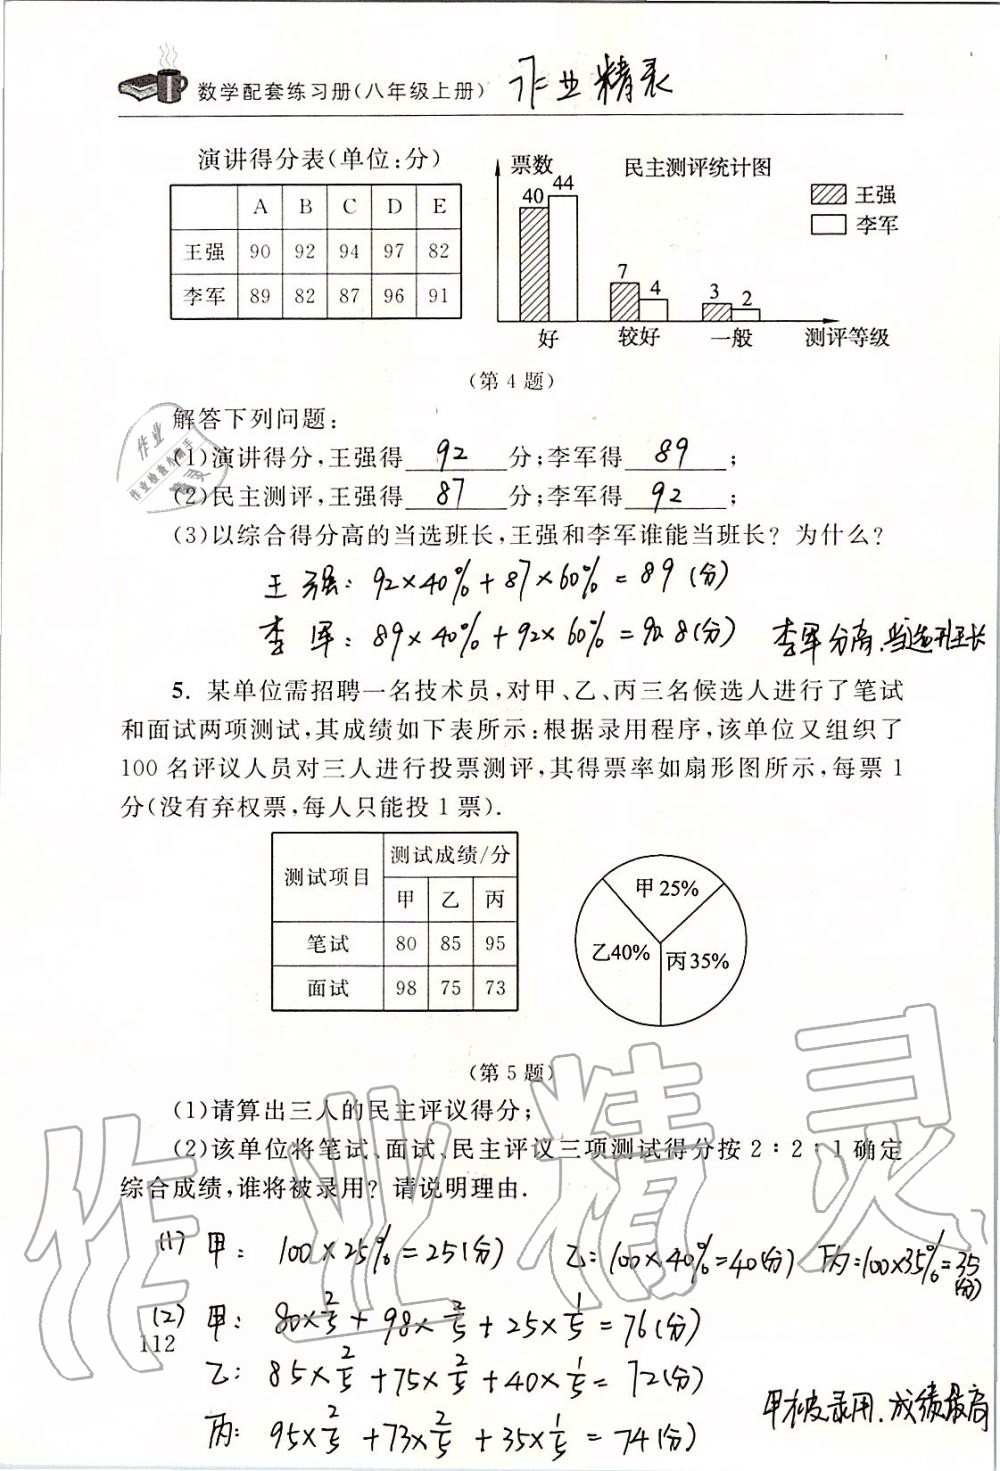 数学配套练习册(八年级上册) 作业精灵
演讲得分表(单位:分)
A B C D E
王强 90 92 94 97 82
李军 89 82 87 96 91
票数
民主测评统计图
王强
李军
40 44
7 4
3 2
好 较好 一般 测评等级
(第4题)
解答下列问题:
(1)演讲得分,王强得 92 分;李军得 89 ;
(2)民主测评,王强得 87 分;李军得 92 ;
(3)以综合得分高的当选班长,王强和李军谁能当班长? 为什么?
王强: 92×40%+87×60%=89(分)
李军: 89×40%+92×60%=90.8(分) 李军分高.当选班长
5. 某单位需招聘一名技术员,对甲、乙、丙三名候选人进行了笔试
和面试两项测试,其成绩如下表所示:根据录用程序,该单位又组织了
100名评议人员对三人进行投票测评,其得票率如扇形图所示,每票1
分(没有弃权票,每人只能投1票).
测试项目 测试成绩/分
甲 乙 丙
笔试 80 85 95
面试 98 75 73
甲25%
乙40%
丙35%
(第5题)
(1)请算出三人的民主评议得分;
(2)该单位将笔试、面试、民主评议三项测试得分按2:2:1确定
综合成绩,谁将被录用? 请说明理由.
(1) 甲: 100×25%=25(分) 乙:100×40%=40(分) 丙:100×35%=35(分)
(2) 甲: 80×2/5+98×2/5+25×1/5=76(分)
112
乙: 85×2/5+75×2/5+40×1/5=72(分)
甲被录用.成绩最高
丙: 95×2/5+73×2/5+35×1/5=74(分)
作业精灵